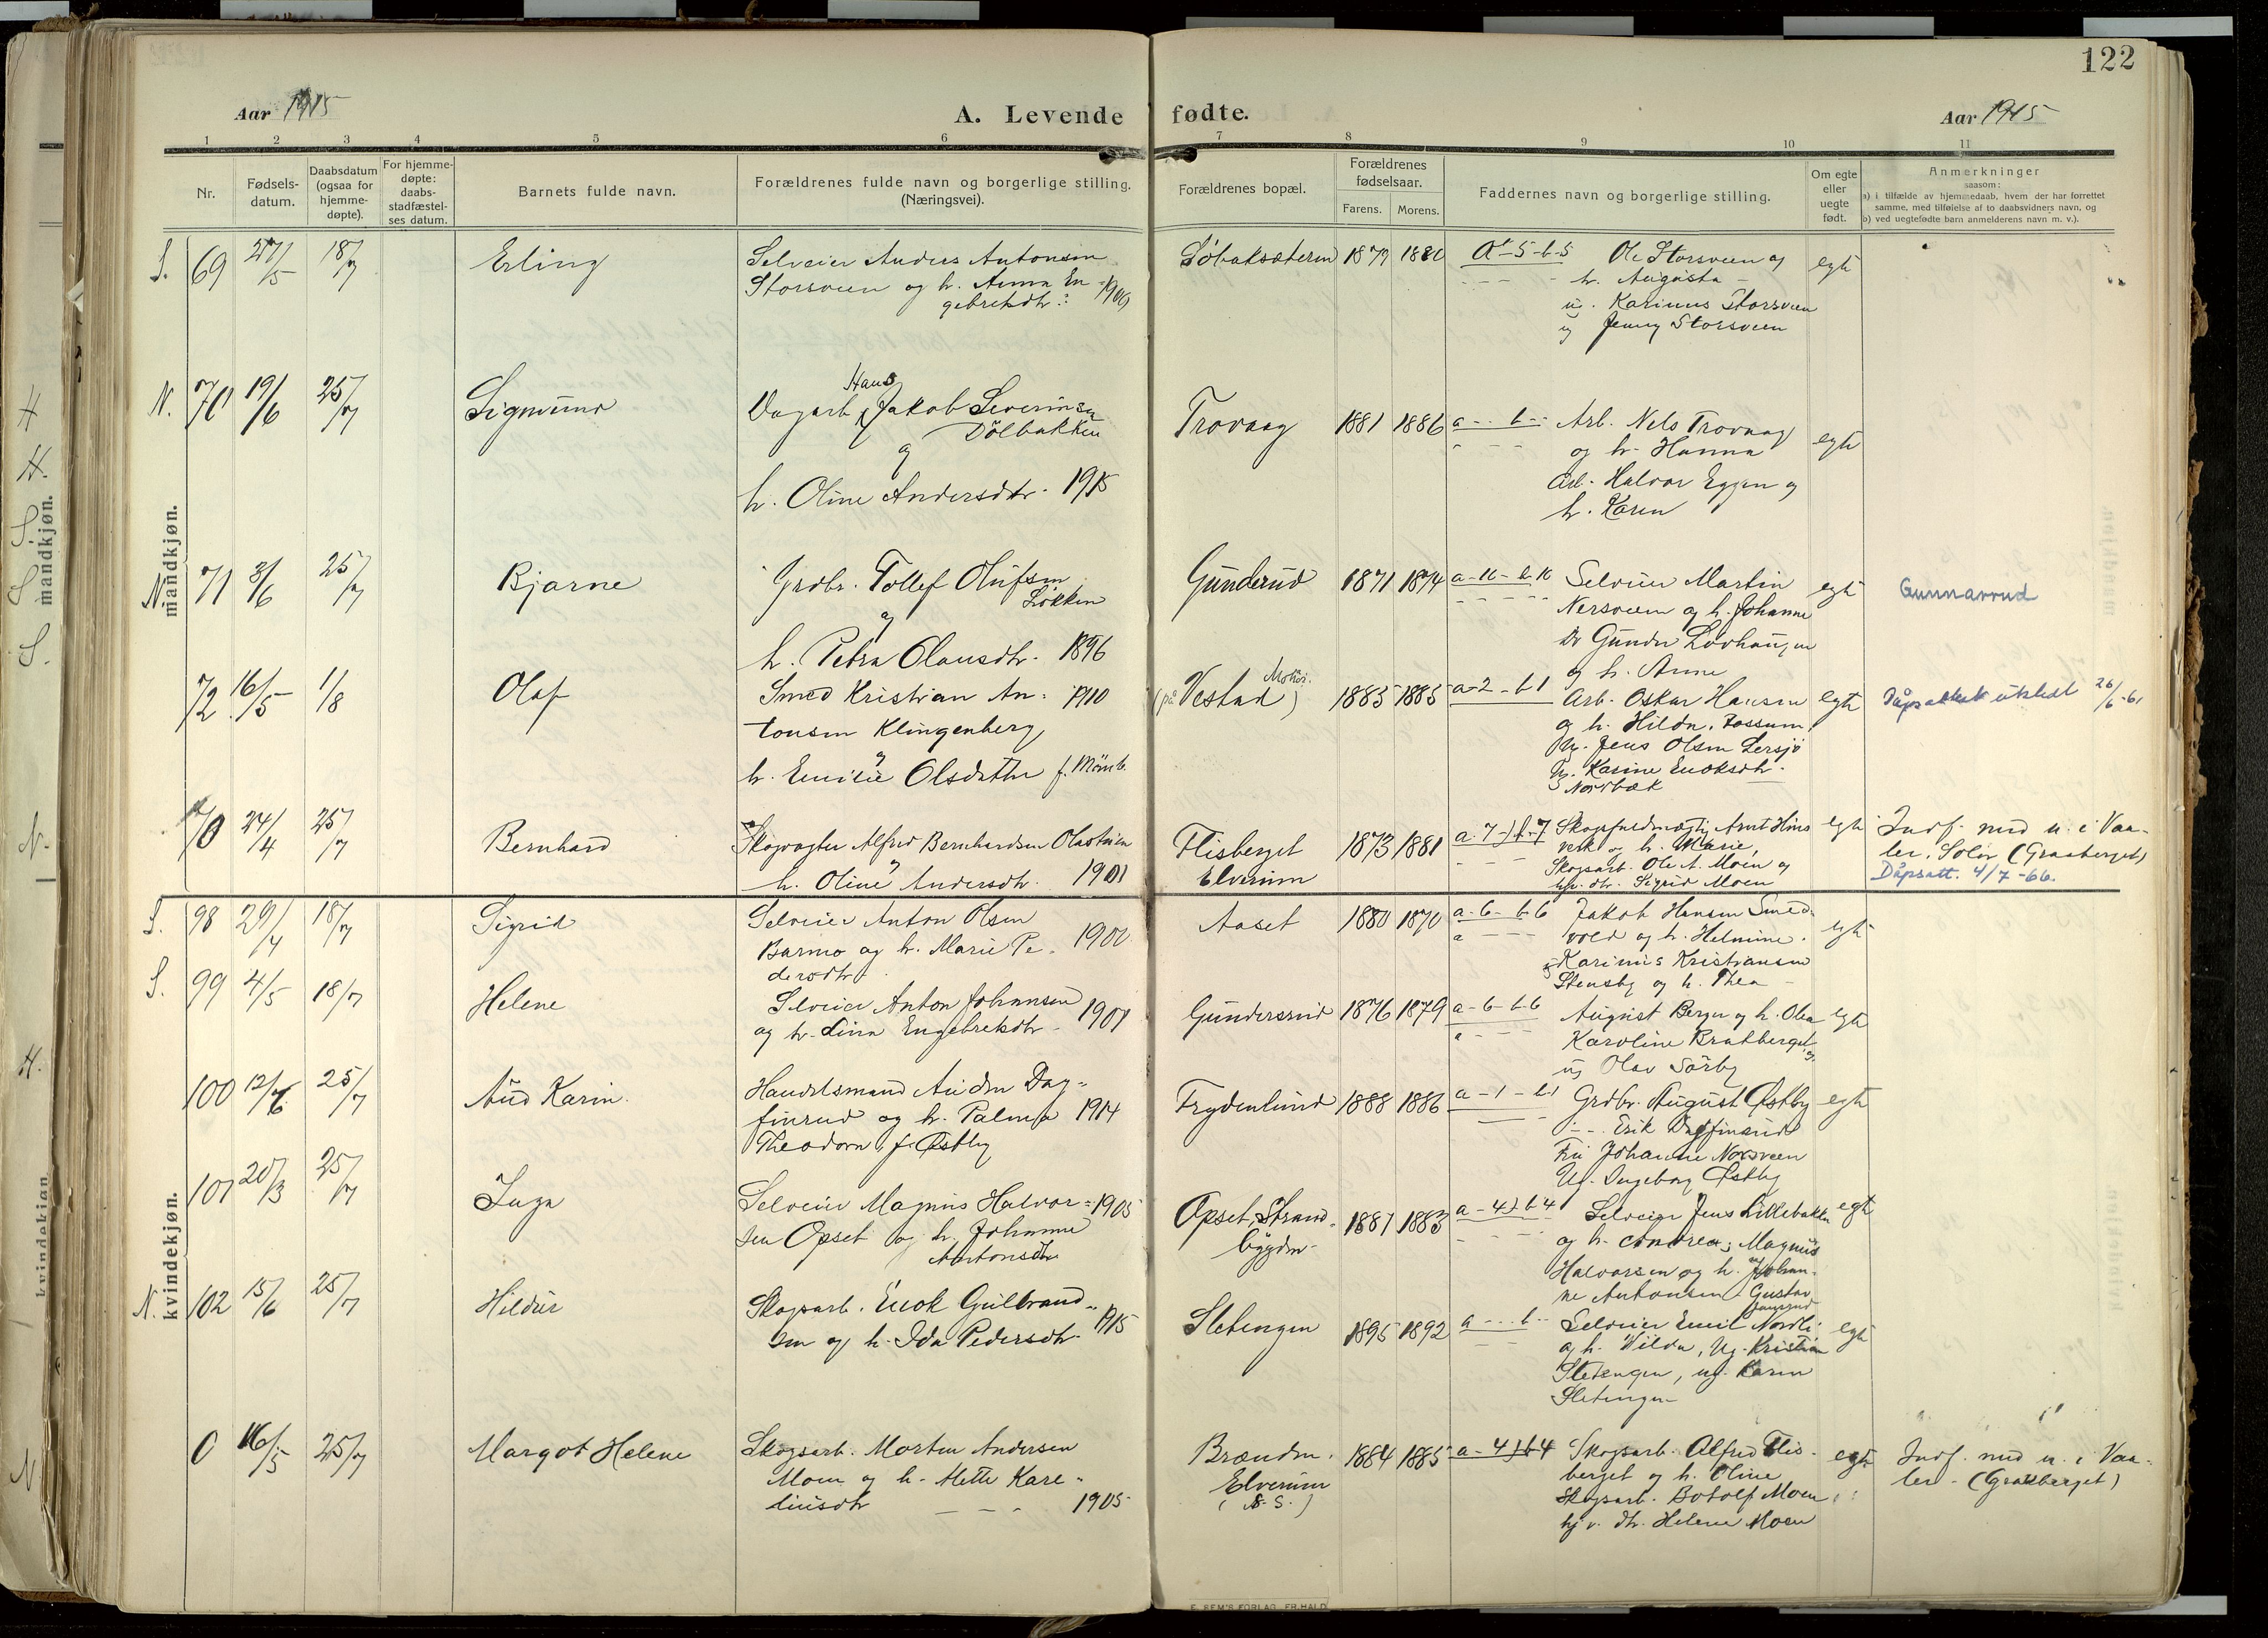 122
Aar 1915
A. Levende fødte.
Aar 1915
1 2 3 4 5 6 7 8 9 10 11
Nr.
Fødsels-
datum.
Daabsdatum
(ogsaa for
hjemme-
døpte).
For hjemme-
døpte:
daabs-
stadfæstel-
ses datum.
Barnets fulde navn.
Forældrenes fulde navn og borgerlige stilling.
(Næringsvei).
Forældrenes bopæl.
Forældrenes
fødselsaar.
Farens. Morens.
Faddernes navn og borgerlige stilling.
Om egte
eller
uegte
født.
Anmerkninger
saasom:
a) i tilfælde av hjemmedaab, hvem der har forrettet
samme, med tilføielse af to daabsvidners navn, og
b) ved uegtefødte barn anmelderens navn m. v.).
mandkjøn.
S. 69 27/5 18/7 Erling
Selveier Anders Antonsen
Storsveen og h. Anna En-
gebretsdtr. 1909
1879 1880 a-5-b-5
Ole Storsveen og
h. Augusta -
ug. Karinus Storsveen
ug Jenny Storsveen
egte
N. 70 19/6 25/7 Sigmund
Hans
Dagarb. Jakob Severinsen
Dölbakken
og
h. Oline Andersdtr. 1915
Trovaag 1881 1886 a - - b - -
Arb. Nels Trovaag
og h. Hanna
Arb. Halvor Eggen og
h. Karen
egte
N. 71 3/6 25/7 Bjarne
Grdbr. Tollef Olufsen
Løkken
og
h. Petra Olausdtr. 1896
Gunderud 1871 1874
Selveier Martin
Nersveen og h. Johanne
og h. Anne
egte
Gunnarrud
72 16/5 1/8 Olaf
Smed Kristian An- 1910
tonsen Klingenberg
og
h. Emilie Olsdatter
(på Vestad) 1885 1885 a-2-b-1
Arb. Oskar Hansen
og h. Hilda, Fossum
Ug. Jens Olsen Lersjö
Ug. Karine Enoksdtr.
Nordbæk
egte
Dåpsattest utstedt 26/6-61
70 24/4 25/7 Bernhard
Skogvogter Alfred Bernhardsen
og
h. Oline Andersdtr. 1901
Flisberget
Elverum
1873 1881 a-7-) b-7
h. Marie,
Skogsarb. Ole A. Moen og
Sigrid Moen
egte
Indf. med n. i Vaa-
ler, Solør (Graaberget)
Dåpsatt. 4/7-66.
kvindekjøn.
S. 98 29/4 18/7 Sigrid
Selveier Anton Olsen
Barmo og h. Marie Pe- 1900
dersdtr.
Aaset 1880 1870 a-6-b-6
Jakob Hansen Smed-
vold og h. Helmine.
Karinus Kristiansen
Stensby og h. Thea -
egte
S. 99 4/5 18/7 Helene
Selveier Anton Johansen
og h. Lina Engebretsdtr. 1901
Gundersrud 1876 1879 a-6-b-6
August Berger og h. Olea
Karoline Bratberget
ug Olav Sörby
egte
100 12/6 25/7 Aud Karin.
Handelsmand Anders Dag-
finrud og h. Palma 1914
Theodora f. Østby
Frydenlund 1888 1886 a-1-b-1
Grdbr. August Østby
- - Erik Dagfinrud
Fru Johanne Norsveen
Ug. Ingeborg Østby
egte
101 20/3 25/7 Inga
Selveier Magnus Halvor- 1905
sen Opset og h. Johanne
Antonsdtr.
Opset, Strand-
bygden
1881 1883 a-4) b-4
Selveier Jens Lillebakken
og h. Andrea; Magnus
Halvorsen og h. Johan-
ne Antonsen. Gustav
egte
N. 102 15/6 25/7 Hildur
Skogsarb. Enok Gulbrand-
sen og h. Ida Pedersdtr. 1915
Sletengen 1895 1892 a - - b - -
Selveier Emil Nordli
og h. Hilda, Ug. Kristian
Sletengen, ug. Karen
Sletengen
egte
0 16/5 25/7 Margot Helene
Skogsarb. Morten Andersen
Moen og h. Mette Kare-
liusdtr. - - 1905
Brænden.
Elverum
(N. S.)
1884 1885 a-4) b-4
Skogsarb. Alfred Flis-
berget og h. Oline
Skogsarb. Botolf Moen
hj. v. dtr. Helene Moen
egte
Indf. med n. i Vaa-
ler. (Graaberget)
E. SEM'S FORLAG, FR.HALD